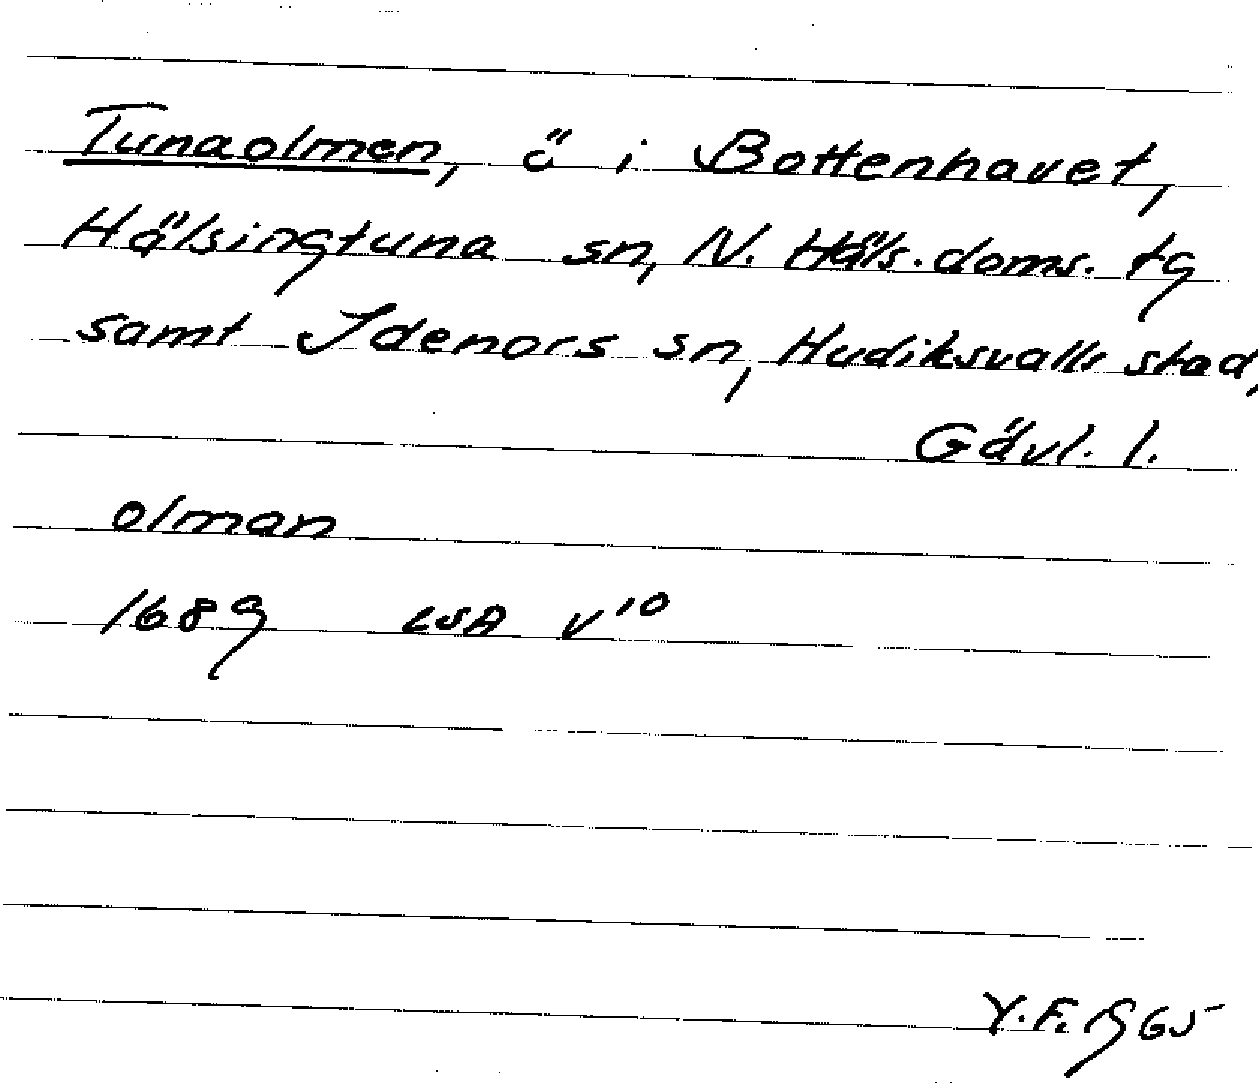 Tunaolmen, ö i Bottenhavet,
Hälsingtuna sn, N. Häls. doms. tg
samt Idenors sn, Hudiksvalls stad,
Gävl. l.
olman
1689 LSA V¹⁰
Y.F. 1965